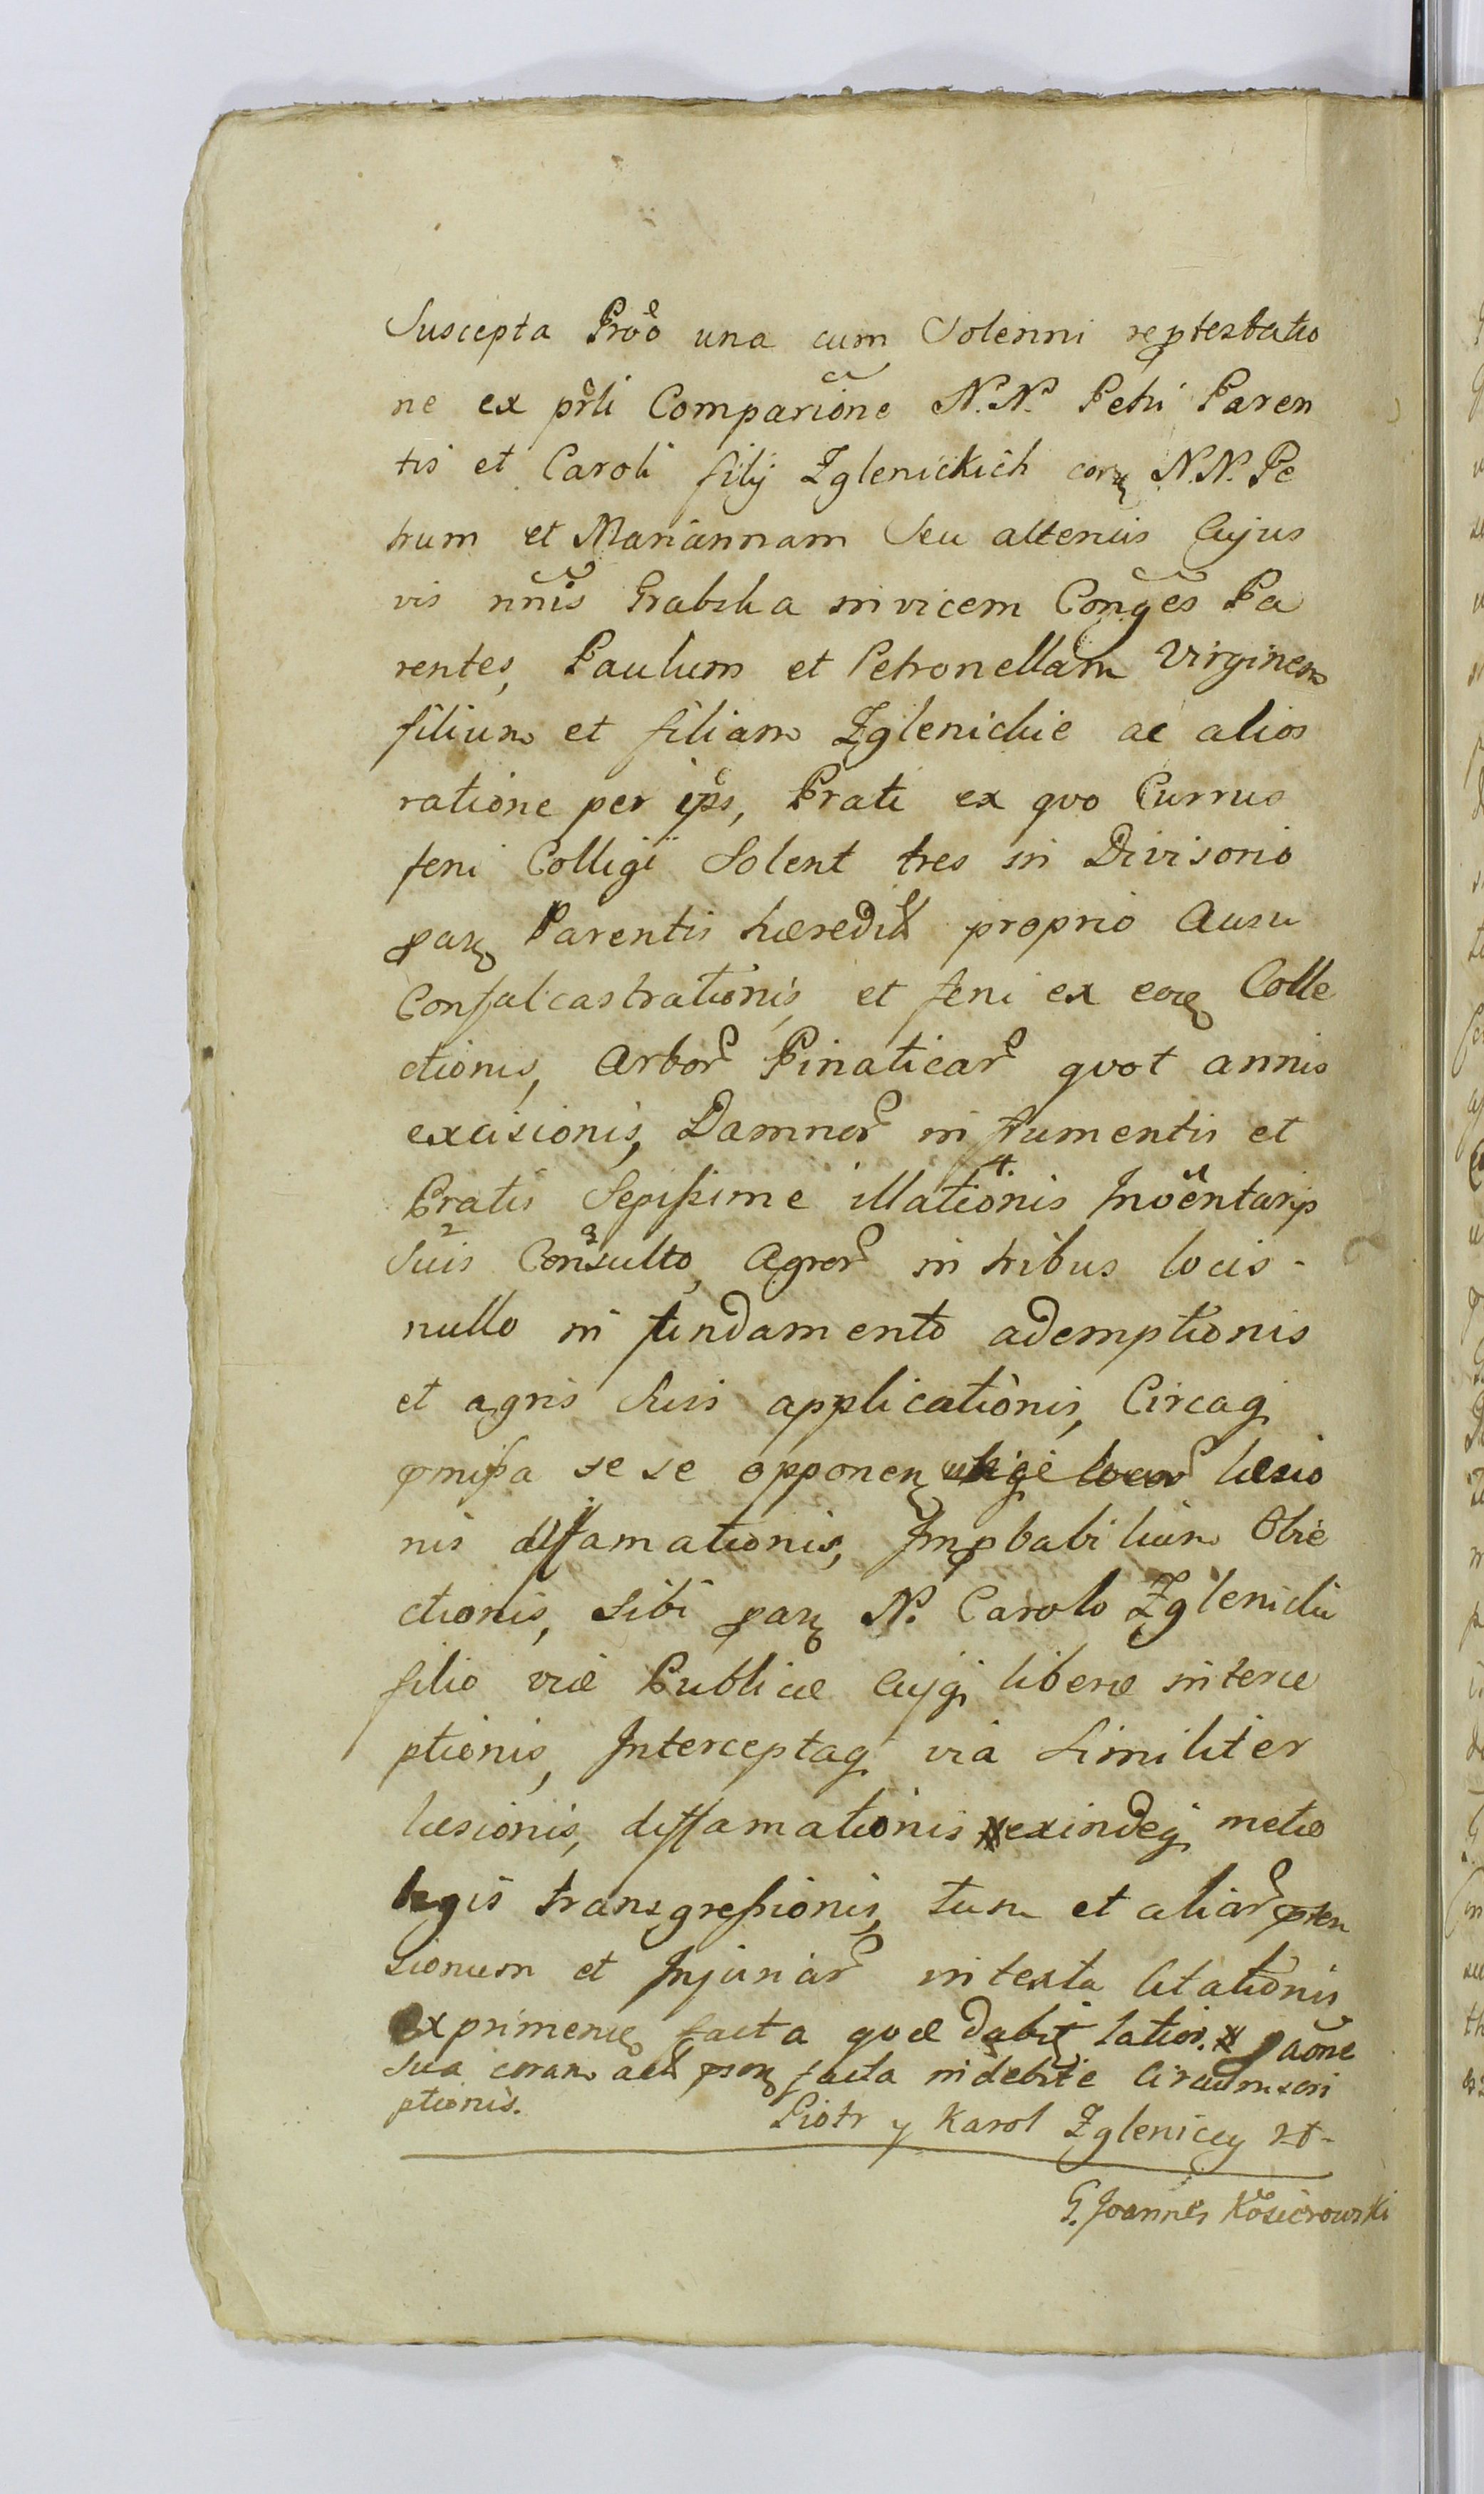 Suscepta Proõ una cum Solenni reptestatio
ne ex prli Comparione N.N. Petri Paren
tis et Caroli filij Zglenickich corz N.N. Pe
trum et Mariannam Seu alterius Cujus
vis nnis Grabska invicem Conges Pa
rentes, Paulum et Petronellam Virginem
filium et filiam Zglenickie ac alios
ratione per ips, Prati ex quo Currus
feni Colligi Solent tres in Divisorio
parz Parentis hæredit proprio Ausu
Confalcastrationis, et feni ex eoz Colle
ctionis, Arbor Pinaticar quot annis
excisionis, Damnor in frumentis et
Pratis Sepissime illationis Inventarijs
Suis Consulto, Agror in tribus locis
nullo in fundamento ademptionis
et agris Suis applicationis, Circaq
pmissa se se opponen læsio
nis diffamationis, Impbabilium Obie
ctionis, sibi parz N. Carolo Zglenicki
filio viæ Publicæ Cujq liberæ interce
ptionis, Interceptaq via Similiter
læsionis, diffamationis exindeq metæ
legis transgressionis, tum et aliar pten
sionum et Injuriar intexta litationis
Exprimen facta quæ dabit latior. aõne
sua coram facta indebite Circumscri
ptionis.
Piotr y Karol Zgleniccy
G. Joannes Kosierowski